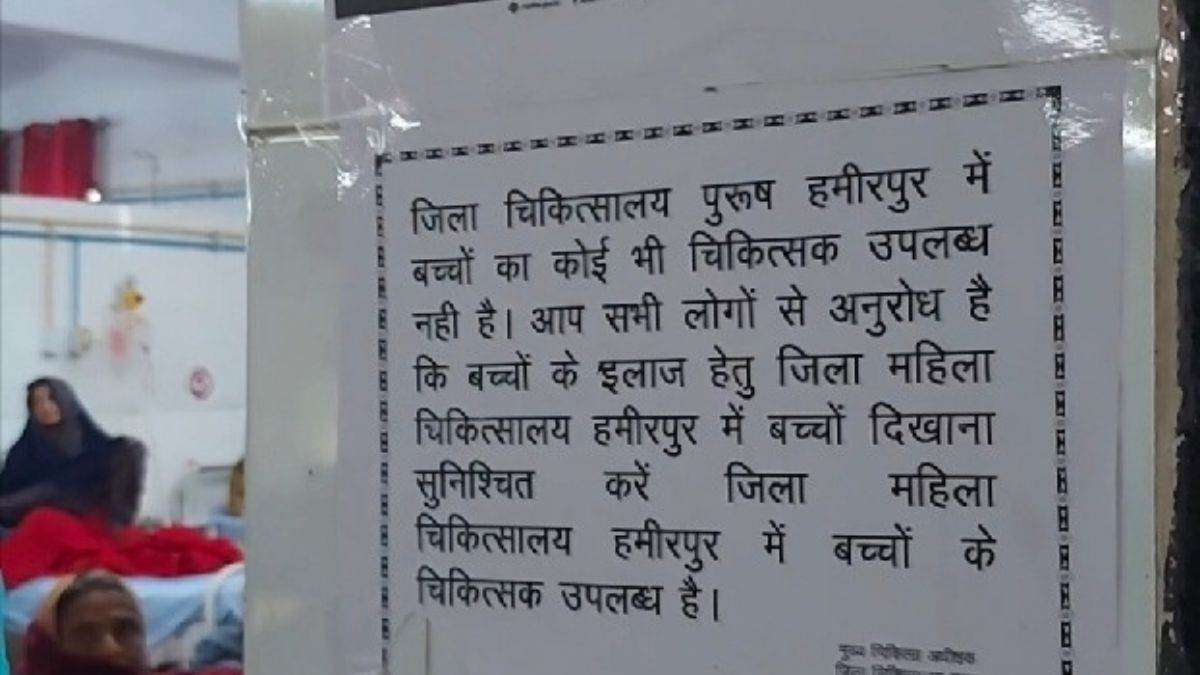 जिला चिकित्सालय पुरूष हमीरपुर में
बच्चों का कोई भी चिकित्सक उपलब्ध
नही है। आप सभी लोगों से अनुरोध है
कि बच्चों के इलाज हेतु जिला महिला
चिकित्सालय हमीरपुर में बच्चों दिखाना
सुनिश्चित करें जिला महिला
चिकित्सालय हमीरपुर में बच्चों के
चिकित्सक उपलब्ध है।
मुख्य चिकित्सा अधीक्षक